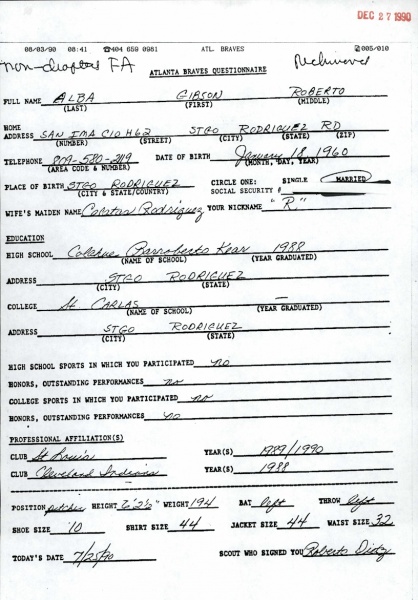 DEC 27 1990
08/03/90 08:41 ☎404 659 0981 ATL BRAVES 005/010
non-drafted FA
ATLANTA BRAVES QUESTIONNAIRE
FULL NAME ALBA GIBSON ROBERTO
(LAST) (FIRST) (MIDDLE)
HOME
ADDRESS SAN IMA C10 H62 STGO RODRIGUEZ RD
(NUMBER) (STREET) (CITY) (STATE) (ZIP)
TELEPHONE 809-580-2119 DATE OF BIRTH January 18, 1960
(AREA CODE & NUMBER) (MONTH, DAY, YEAR)
PLACE OF BIRTH STGO RODRIGUEZ CIRCLE ONE: SINGLE MARRIED
(CITY & STATE/COUNTRY) SOCIAL SECURITY #
WIFE'S MAIDEN NAME Rodriguez YOUR NICKNAME "R"
EDUCATION
HIGH SCHOOL 1988
(NAME OF SCHOOL) (YEAR GRADUATED)
ADDRESS STGO RODRIGUEZ
(CITY) (STATE)
COLLEGE St CARLAS —
(NAME OF SCHOOL) (YEAR GRADUATED)
ADDRESS STGO RODRIGUEZ
(CITY) (STATE)
HIGH SCHOOL SPORTS IN WHICH YOU PARTICIPATED no
HONORS, OUTSTANDING PERFORMANCES no
COLLEGE SPORTS IN WHICH YOU PARTICIPATED no
HONORS, OUTSTANDING PERFORMANCES no
PROFESSIONAL AFFILIATION(S)
CLUB St Louis YEAR(S) 1989/1990
CLUB Cleveland Indians YEAR(S) 1988
POSITION pitcher HEIGHT 6'2½" WEIGHT 194 BAT left THROW left
SHOE SIZE 10 SHIRT SIZE 44 JACKET SIZE 44 WAIST SIZE 32
TODAY'S DATE 7/25/90 SCOUT WHO SIGNED YOU Roberto Diaz